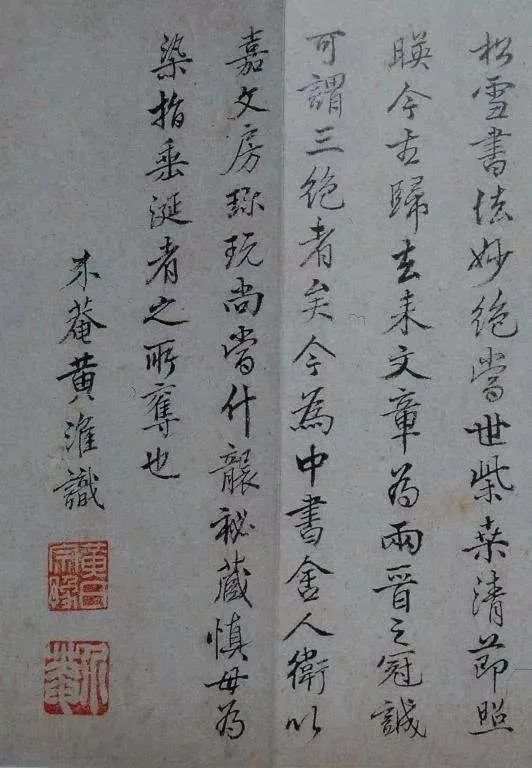 松雪書法妙絶當世柴桑清節照
暎今古歸去来文章為兩晉之冠誠
可謂三絶者矣今為中書舍人衛以
嘉文房珎玩尚當什襲祕藏慎毋為
染指垂涎者之所奪也
未菴黄淮識